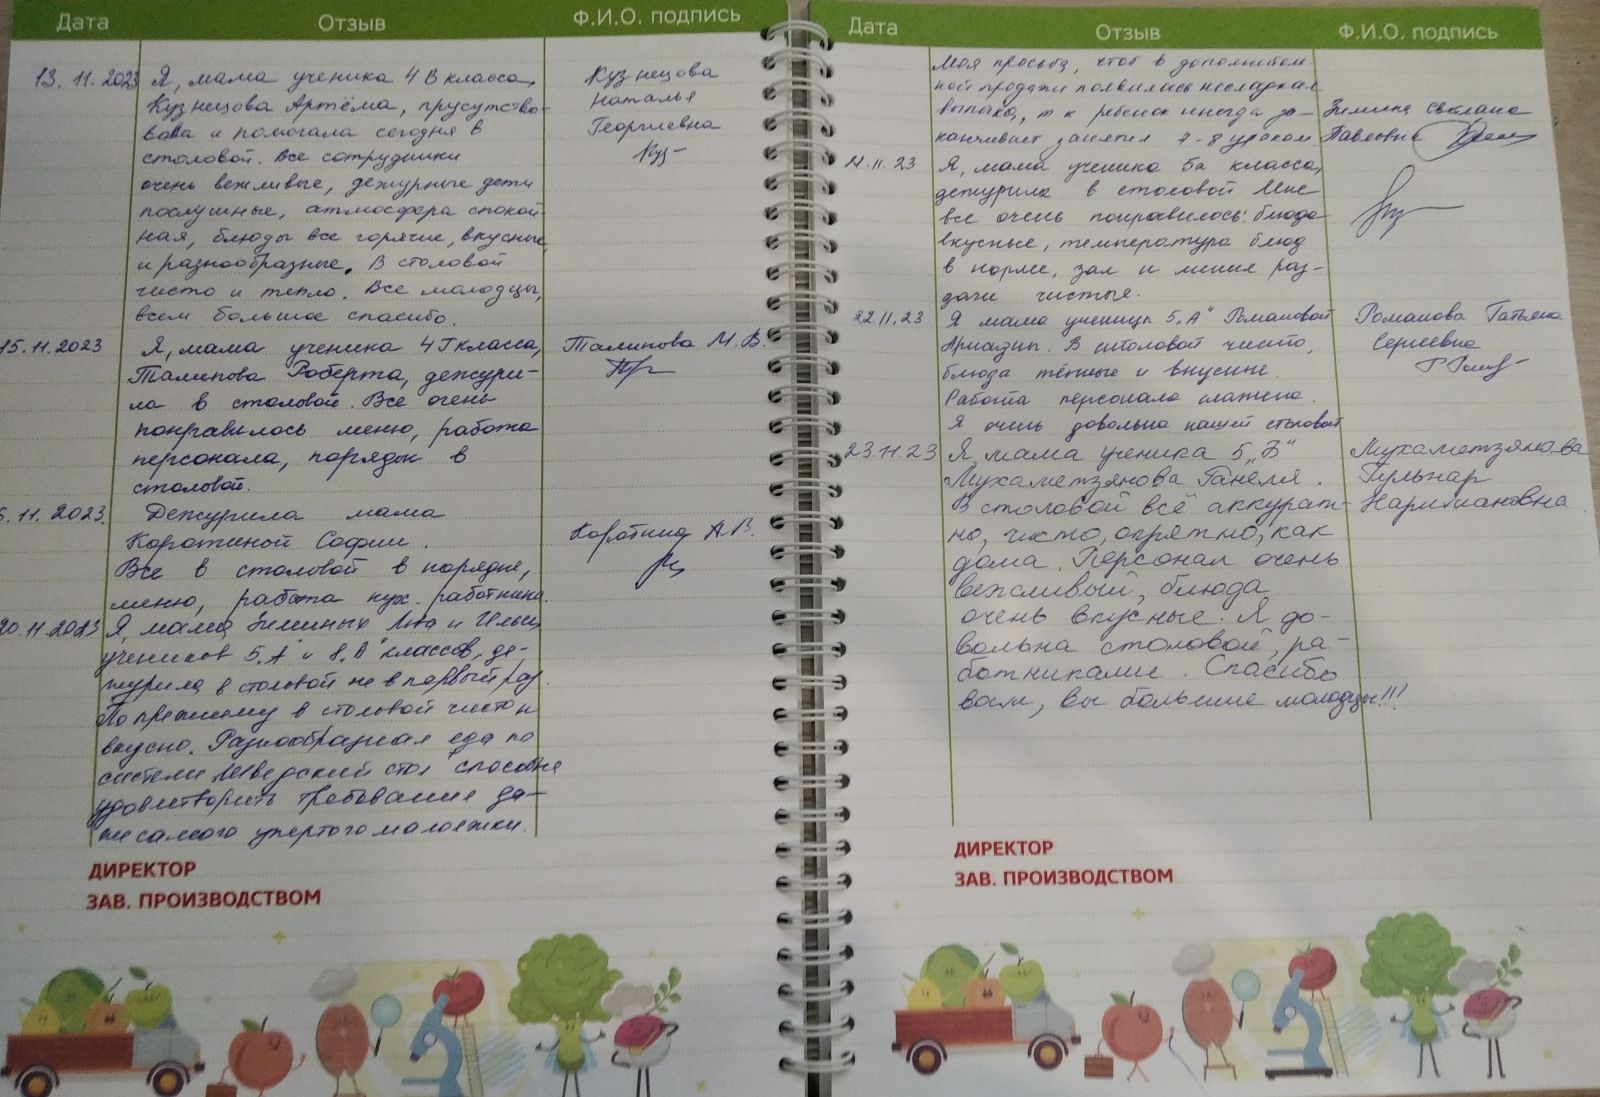 Дата Отзыв Ф.И.О. подпись
13.11.2023 Я, мама ученика 4 В класса, Кузнецова
Кузнецова Артёма, прусутство- Наталья
вала и помогала сегодня в Георгиевна
столовой. Все сотрудники Куз
очень вежливые, дежурные дети
послушные, атмосфера спокой-
ная, блюды все горячие, вкусные
и разнообразные. В столовой
чисто и тепло. Все молодцы,
всем большое спасибо.
15.11.2023 Я, мама ученика 4 Г класса, Талипова М.В.
Талипова Роберта, дежури-
ла в столовой. Все очень
понравилось меню, работа
персонала, порядок в
столовой.
6.11.2023. Дежурила мама
Коротиной Софии. Коротина А.В.
Все в столовой в порядке,
меню, работа кух. работника.
20.11.2023 Я, мама Зиминых Льва и Ильи,
учеников 5„А" и 8„А" классов, де-
журила в столовой не в первый раз.
По прежнему в столовой чисто и
вкусно. Разнообразная еда по
системе „Шведский стол" способна
удовлетворить требования да-
же самого упертого малоежки.
ДИРЕКТОР
ЗАВ. ПРОИЗВОДСТВОМ
Дата Отзыв Ф.И.О. подпись
Моя просьба, чтоб в дополнител
ной продажи появилась несладкая
выпечка, т к ребенок иногда за- Зимина Светлана
канчивает занятия 7-8 уроком Павловна
21.11.23 Я, мама ученика 5а класса,
дежурила в столовой. Мне
все очень понравилось: блюда
вкусные, температура блюд
в норме, зал и линия раз-
дачи чистые.
22.11.23 Я мама ученицы 5„А" Романовой Романова Татьяна
. В столовой чисто, Сергеевна
блюда тёплые и вкусные.
Работа персонала слажена.
Я очень довольна нашей столовой
23.11.23 Я, мама ученика 5„Б" Мухаметзянова
Мухаметзянова Ганеля. Гульнар
В столовой всё аккурат- Наримановна
но, чисто, опрятно, как
дома. Персонал очень
вежливый, блюда
очень вкусные. Я до-
вольна столовой, ра-
ботниками. Спасибо
вам, вы большие молодцы!!!
ДИРЕКТОР
ЗАВ. ПРОИЗВОДСТВОМ